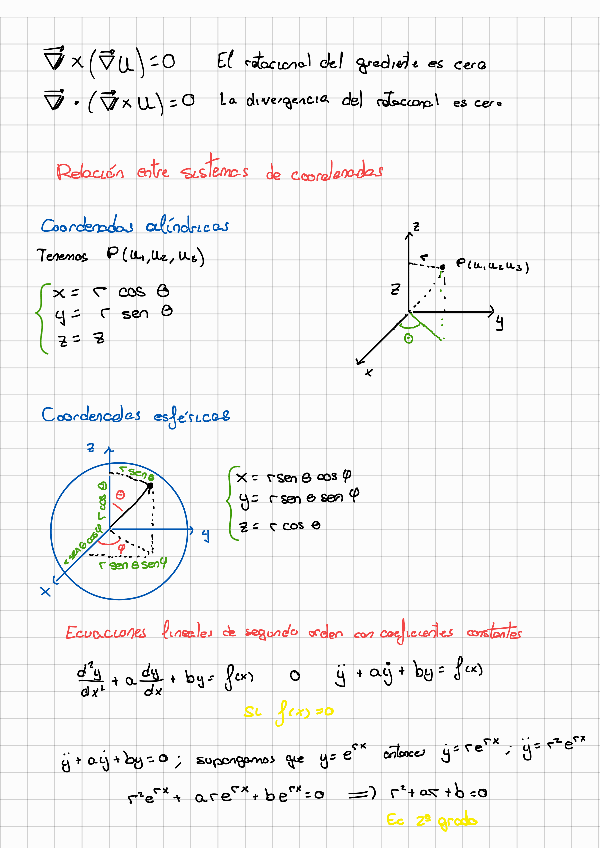 ∇⃗ × (∇⃗u) = 0 El rotacional del gradiente es cero
∇⃗ · (∇⃗ × u) = 0 La divergencia del rotacional es cero
Relación entre sistemas de coordenadas
Coordenadas cilíndricas
Tenemos P(u₁, u₂, u₃)
x = r cos θ
y = r sen θ
z = z
z
r
P(u₁, u₂, u₃)
z
y
θ
x
Coordenadas esféricas
z
r sen θ
r cos θ
θ
y
r sen θ cos φ
φ
r sen θ sen φ
x
x = r sen θ cos φ
y = r sen θ sen φ
z = r cos θ
Ecuaciones lineales de segundo orden con coeficientes constantes
d²y/dx² + a dy/dx + by = f(x) o ÿ + aẏ + by = f(x)
Si f(x) = 0
ÿ + aẏ + by = 0 ; supongamos que y = e^{rx} entonces ẏ = re^{rx} ; ÿ = r²e^{rx}
r²e^{rx} + are^{rx} + be^{rx} = 0 ⟹ r² + ar + b = 0
Ec 2º grado